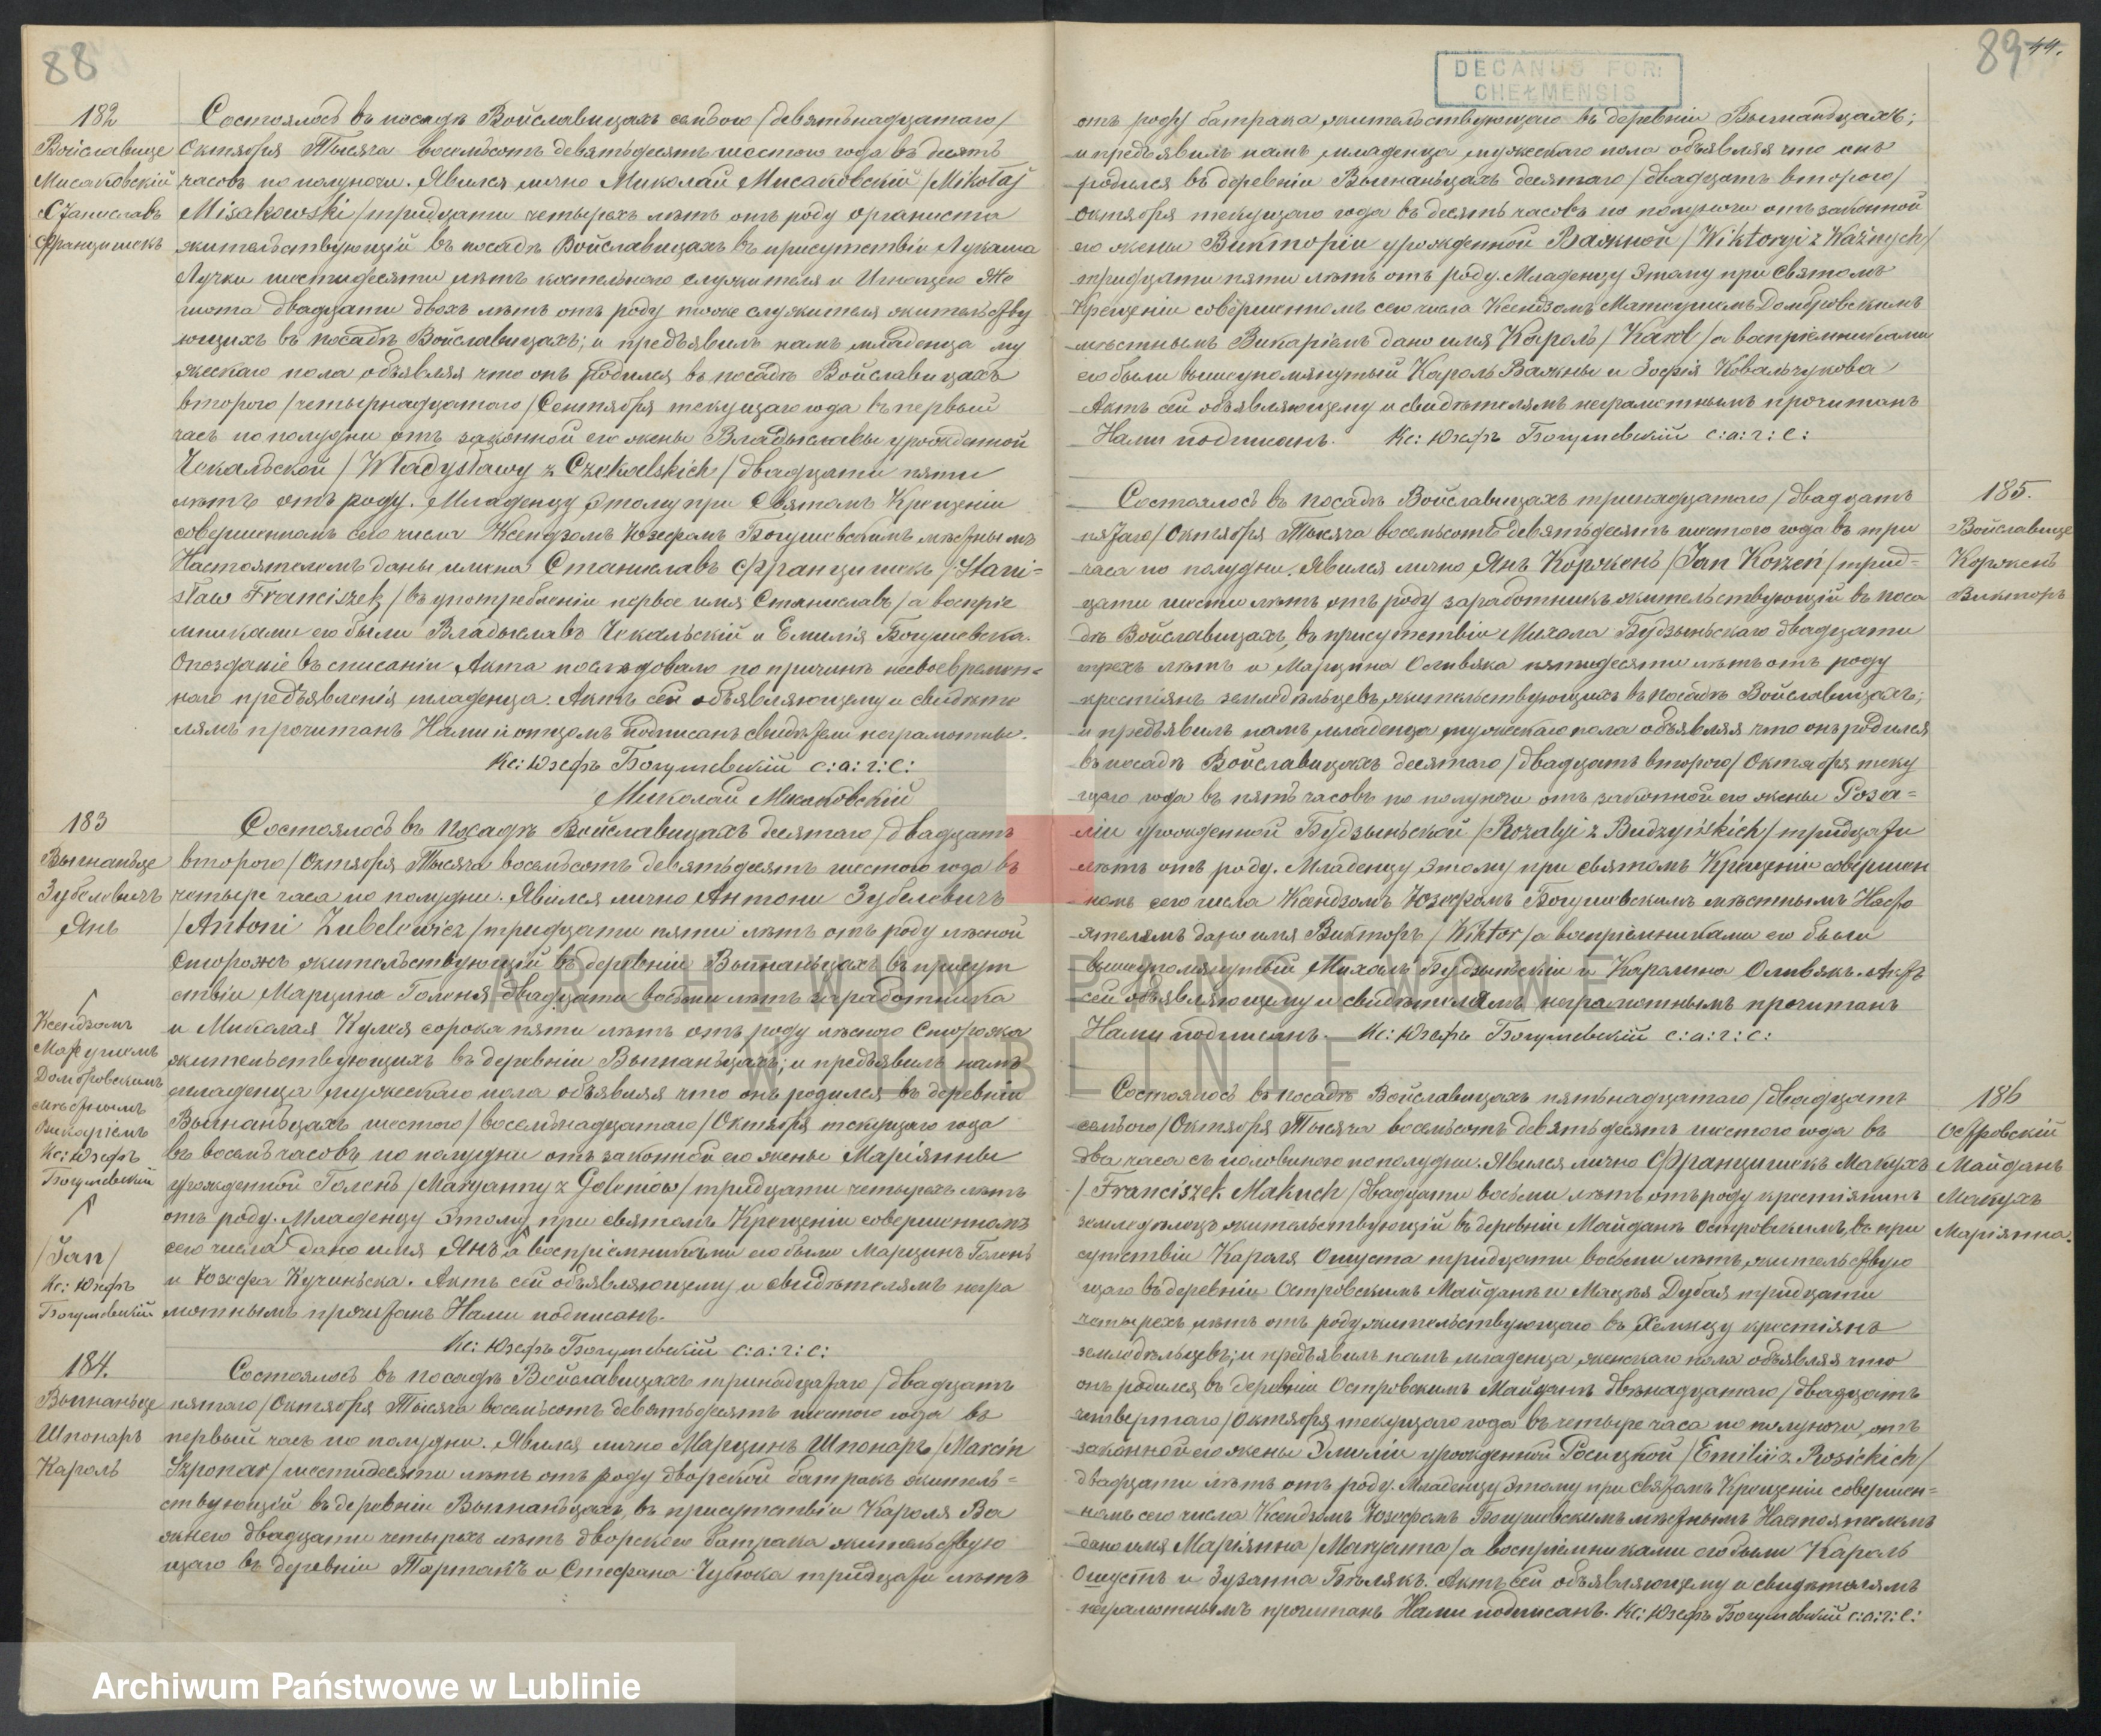 88
182
Войславице
Мисаковскій
Станиславъ
Францишекъ
Состоялось въ посадѣ Войславицахъ седьмого /девятьнадцатаго/
Октября Тысяча восемьсотъ девятьдесятъ шестого года въ десять
часовъ по полуночи. Явился лично Миколай Мисаковскій /Mikołaj
Misakowski/ тридцати четырехъ лѣтъ отъ роду органиста
жительствующій въ посадѣ Войславицахъ въ присутствіи Лукаша
Лучки шестидесяти лѣтъ костельнаго служителя и Игнацего Же
гота двадцати двохъ лѣтъ отъ роду тоже служителя жительству
ющихъ въ посадѣ Войславицахъ; и предъявилъ намъ младенца му
жескаго пола объявляя что онъ родился въ посадѣ Войславицахъ
второго /четырнадцатаго/ Сентября текущаго года въ первый
часъ по полудни отъ законной его жены Владыславы урожденной
Чекальской /Władysławy z Czekalskich/ двадцати пяти
лѣтъ отъ роду. Младенцу этому при Святомъ Крещеніи
совершенномъ сего числа Ксендзомъ Юзефомъ Богушевскимъ мѣстнымъ
Настоятелемъ даны имена Станиславъ Францишекъ /Stani=
sław Franciszek/ въ употребленіи первое имя Станиславъ /а воспріе
мниками его были Владыславъ Чекальскій и Емилія Богушевска.
Опозданіе въ списаніи Акта послѣдовало по причинѣ несвоевремен=
наго предъявленія младенца. Актъ сей объявляющему и свидѣте
лямъ прочитанъ Нами и отцомъ подписанъ свидѣтели неграмотны.
Кс: Юзефъ Богушевскій с:а:г:с:
Миколай Мисаковскій
183
Выгнаньце
Зубелевичъ
Янъ
Состоялось въ посадѣ Войславицахъ десятаго /двадцать
второго/ Октября Тысяча восемьсотъ девятьдесятъ шестого года въ
четыре часа по полудни. Явился лично Антони Зубелевичъ
/Antoni Zubelewicz/ тридцати пяти лѣтъ отъ роду лѣсной
Сторожъ жительствующій въ деревни Выгнаньцахъ въ присут
ствіи Марцина Голеня двадцати восьми лѣтъ заработника
и Миколая Кулея сорока пяти лѣтъ отъ роду лѣсного Сторожа
жительствующихъ въ деревни Выгнаньцахъ; и предъявилъ намъ
младенца мужескаго пола объявляя что онъ родился въ деревни
Выгнаньцахъ шестого /восемьнадцатаго/ Октября текущаго года
въ восемь часовъ по полудни отъ законной его жены Маріянны
урожденной Голень /Maryanny z Goleniów/ тридцати четырехъ лѣтъ
отъ роду. Младенцу этому при святомъ Крещеніи совершенномъ
сего числа дано имя Янъ а воспріемниками его были Марцинъ Голень
и Юзефа Кучиньска. Актъ сей объявляющему и свидѣтелямъ негра
мотнымъ прочитанъ Нами подписанъ.
Кс: Юзефъ Богушевскій с:а:г:с:
Ксендзомъ
Матушемъ
Домбровскимъ
мѣстнымъ
Викаріемъ
Кс: Юзефъ
Богушевскій
/Jan/
Кс: Юзефъ
Богушевскій
184.
Выгнаньце
Шпонаръ
Кароль
Состоялось въ посадѣ Войславицахъ тринадцатаго /двадцать
пятаго/ Октября Тысяча восемьсотъ девятьдесятъ шестого года въ
первый часъ по полудни. Явился лично Марцинъ Шпонаръ /Marcin
Szponar/ шестидесяти лѣтъ отъ роду дворской батракъ житель=
ствующій въ деревни Выгнаньцахъ, въ присутствіи Кароля Ва
жнего двадцати четырехъ лѣтъ дворского батрака жительствую
щаго въ деревни Тартакъ и Стефана Чубюка тридцати лѣтъ
89 44.
DECANUS FOR:
CHEŁMENSIS
отъ роду батрака жительствующаго въ деревни Выгнаньцахъ;
и предъявилъ намъ младенца мужескаго пола объявляя что онъ
родился въ деревни Выгнаньцахъ десятаго /двадцать второго/
Октября текущаго года въ десять часовъ по полуночи отъ законной
его жены Викторіи урожденной Важной /Wiktoryi z Ważnych/
тридцати пяти лѣтъ отъ роду. Младенцу этому при Святомъ
Крещеніи совершенномъ сего числа Ксендзомъ Матеушемъ Домбровскимъ
мѣстнымъ Викаріемъ дано имя Кароль /Karol/ а воспріемниками
его были вышеупомянутый Кароль Важны и Зофія Ковальчукова
Актъ сей объявляющему и свидѣтелямъ неграмотнымъ прочитанъ
Нами подписанъ. Кс: Юзефъ Богушевскій с:а:г:с:
185.
Войславице
Корженъ
Викторъ
Состоялось въ посадѣ Войславицахъ тринадцатаго /двадцать
пятаго/ Октября Тысяча восемьсотъ девятьдесятъ шестого года въ три
часа по полудни. Явился лично Янъ Корженъ /Jan Korzeń/ трид=
цати шести лѣтъ отъ роду заработникъ жительствующій въ поса
дѣ Войславицахъ, въ присутствіи Михала Будзыньскаго двадцати
трехъ лѣтъ и Марцина Оливяка пятидесяти лѣтъ отъ роду
крестіянъ земледѣльцевъ, жительствующихъ въ посадѣ Войславицахъ;
и предъявилъ намъ младенца мужескаго пола объявляя что онъ родился
въ посадѣ Войславицахъ десятаго /двадцать второго/ Октября теку
щаго года въ пять часовъ по полуночи отъ законной его жены Роза=
ліи урожденной Будзыньской /Rozalyi z Budzyńskich/ тридцати
лѣтъ отъ роду. Младенцу этому при святомъ Крещеніи совершен
номъ сего числа Ксендзомъ Юзефомъ Богушевскимъ мѣстнымъ Насто
ятелемъ дано имя Викторъ /Wiktor/ а воспріемниками его были
вышеупомянутый Михалъ Будзыньскій и Каролина Оливякъ. Актъ
сей объявляющему и свидѣтелямъ неграмотнымъ прочитанъ
Нами подписанъ. Кс: Юзефъ Богушевскій с:а:г:с:
186
Островскій
Майданъ
Махухъ
Маріянна.
Состоялось въ посадѣ Войславицахъ пятьнадцатаго /двадцать
седьмого/ Октября Тысяча восемьсотъ девятьдесятъ шестого года въ
два часа съ половиною по полудни. Явился лично Францишекъ Махухъ
/Franciszek Makuch/ двадцати восьми лѣтъ отъ роду крестіянинъ
земледѣлецъ жительствующій въ деревни Майданѣ Островскимъ, въ при
сутствіи Кароля Ошуста тридцати восьми лѣтъ, жительствую
щаго въ деревни Островскимъ Майданѣ и Мацея Дубая тридцати
четырехъ лѣтъ отъ роду жительствующаго въ Хелмцу крестіянъ
земледѣльцевъ; и предъявилъ намъ младенца женскаго пола объявляя что
онъ родился въ деревни Островскимъ Майданѣ двѣнадцатаго /двадцать
четвертаго/ Октября текущаго года въ четыре часа по полуночи, отъ
законной его жены Эмиліи урожденной Росицкой /Emilii z Rosickich/
двадцати лѣтъ отъ роду. Младенцу этому при Святомъ Крещеніи совершен=
номъ сего числа Ксендзомъ Юзефомъ Богушевскимъ мѣстнымъ Настоятелемъ
дано имя Маріянна /Maryanna/ а воспріемниками его были Кароль
Ошустъ и Зузанна Бѣлякъ. Актъ сей объявляющему и свидѣтелямъ
неграмотнымъ прочитанъ Нами подписанъ. Кс: Юзефъ Богушевскій с:а:г:с:
ARCHIWUM PAŃSTWOWE
W LUBLINIE
Archiwum Państwowe w Lublinie